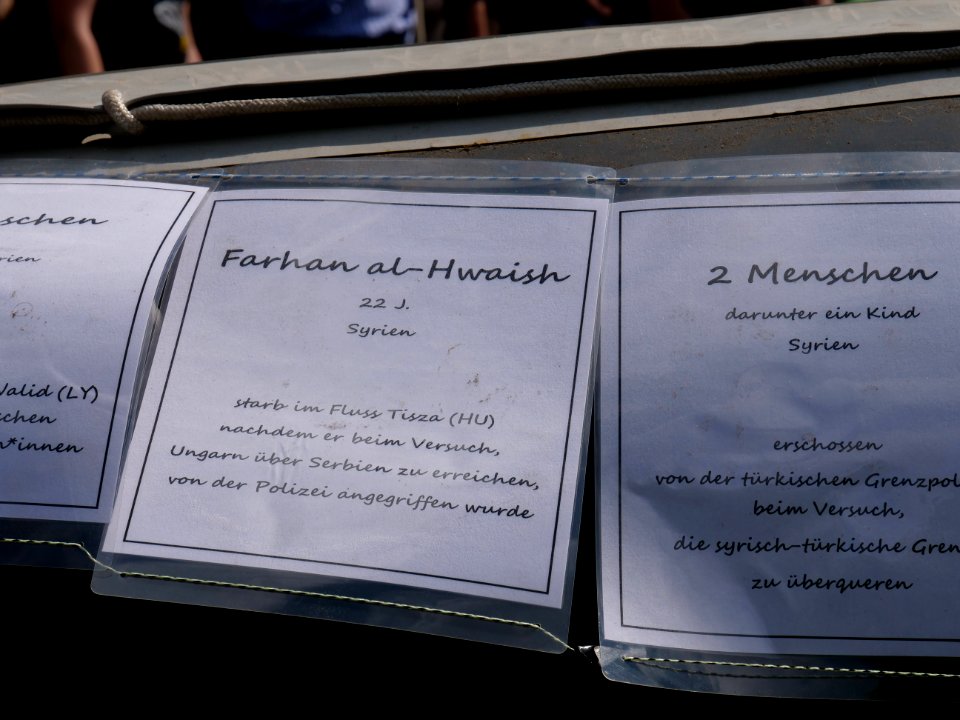 Farhan al-Hwaish
22 J.
Syrien
starb im Fluss Tisza (HU)
nachdem er beim Versuch,
Ungarn über Serbien zu erreichen,
von der Polizei angegriffen wurde
2 Menschen
darunter ein Kind
Syrien
erschossen
von der türkischen
beim Versuch,
die syrisch-türkische
zu überqueren